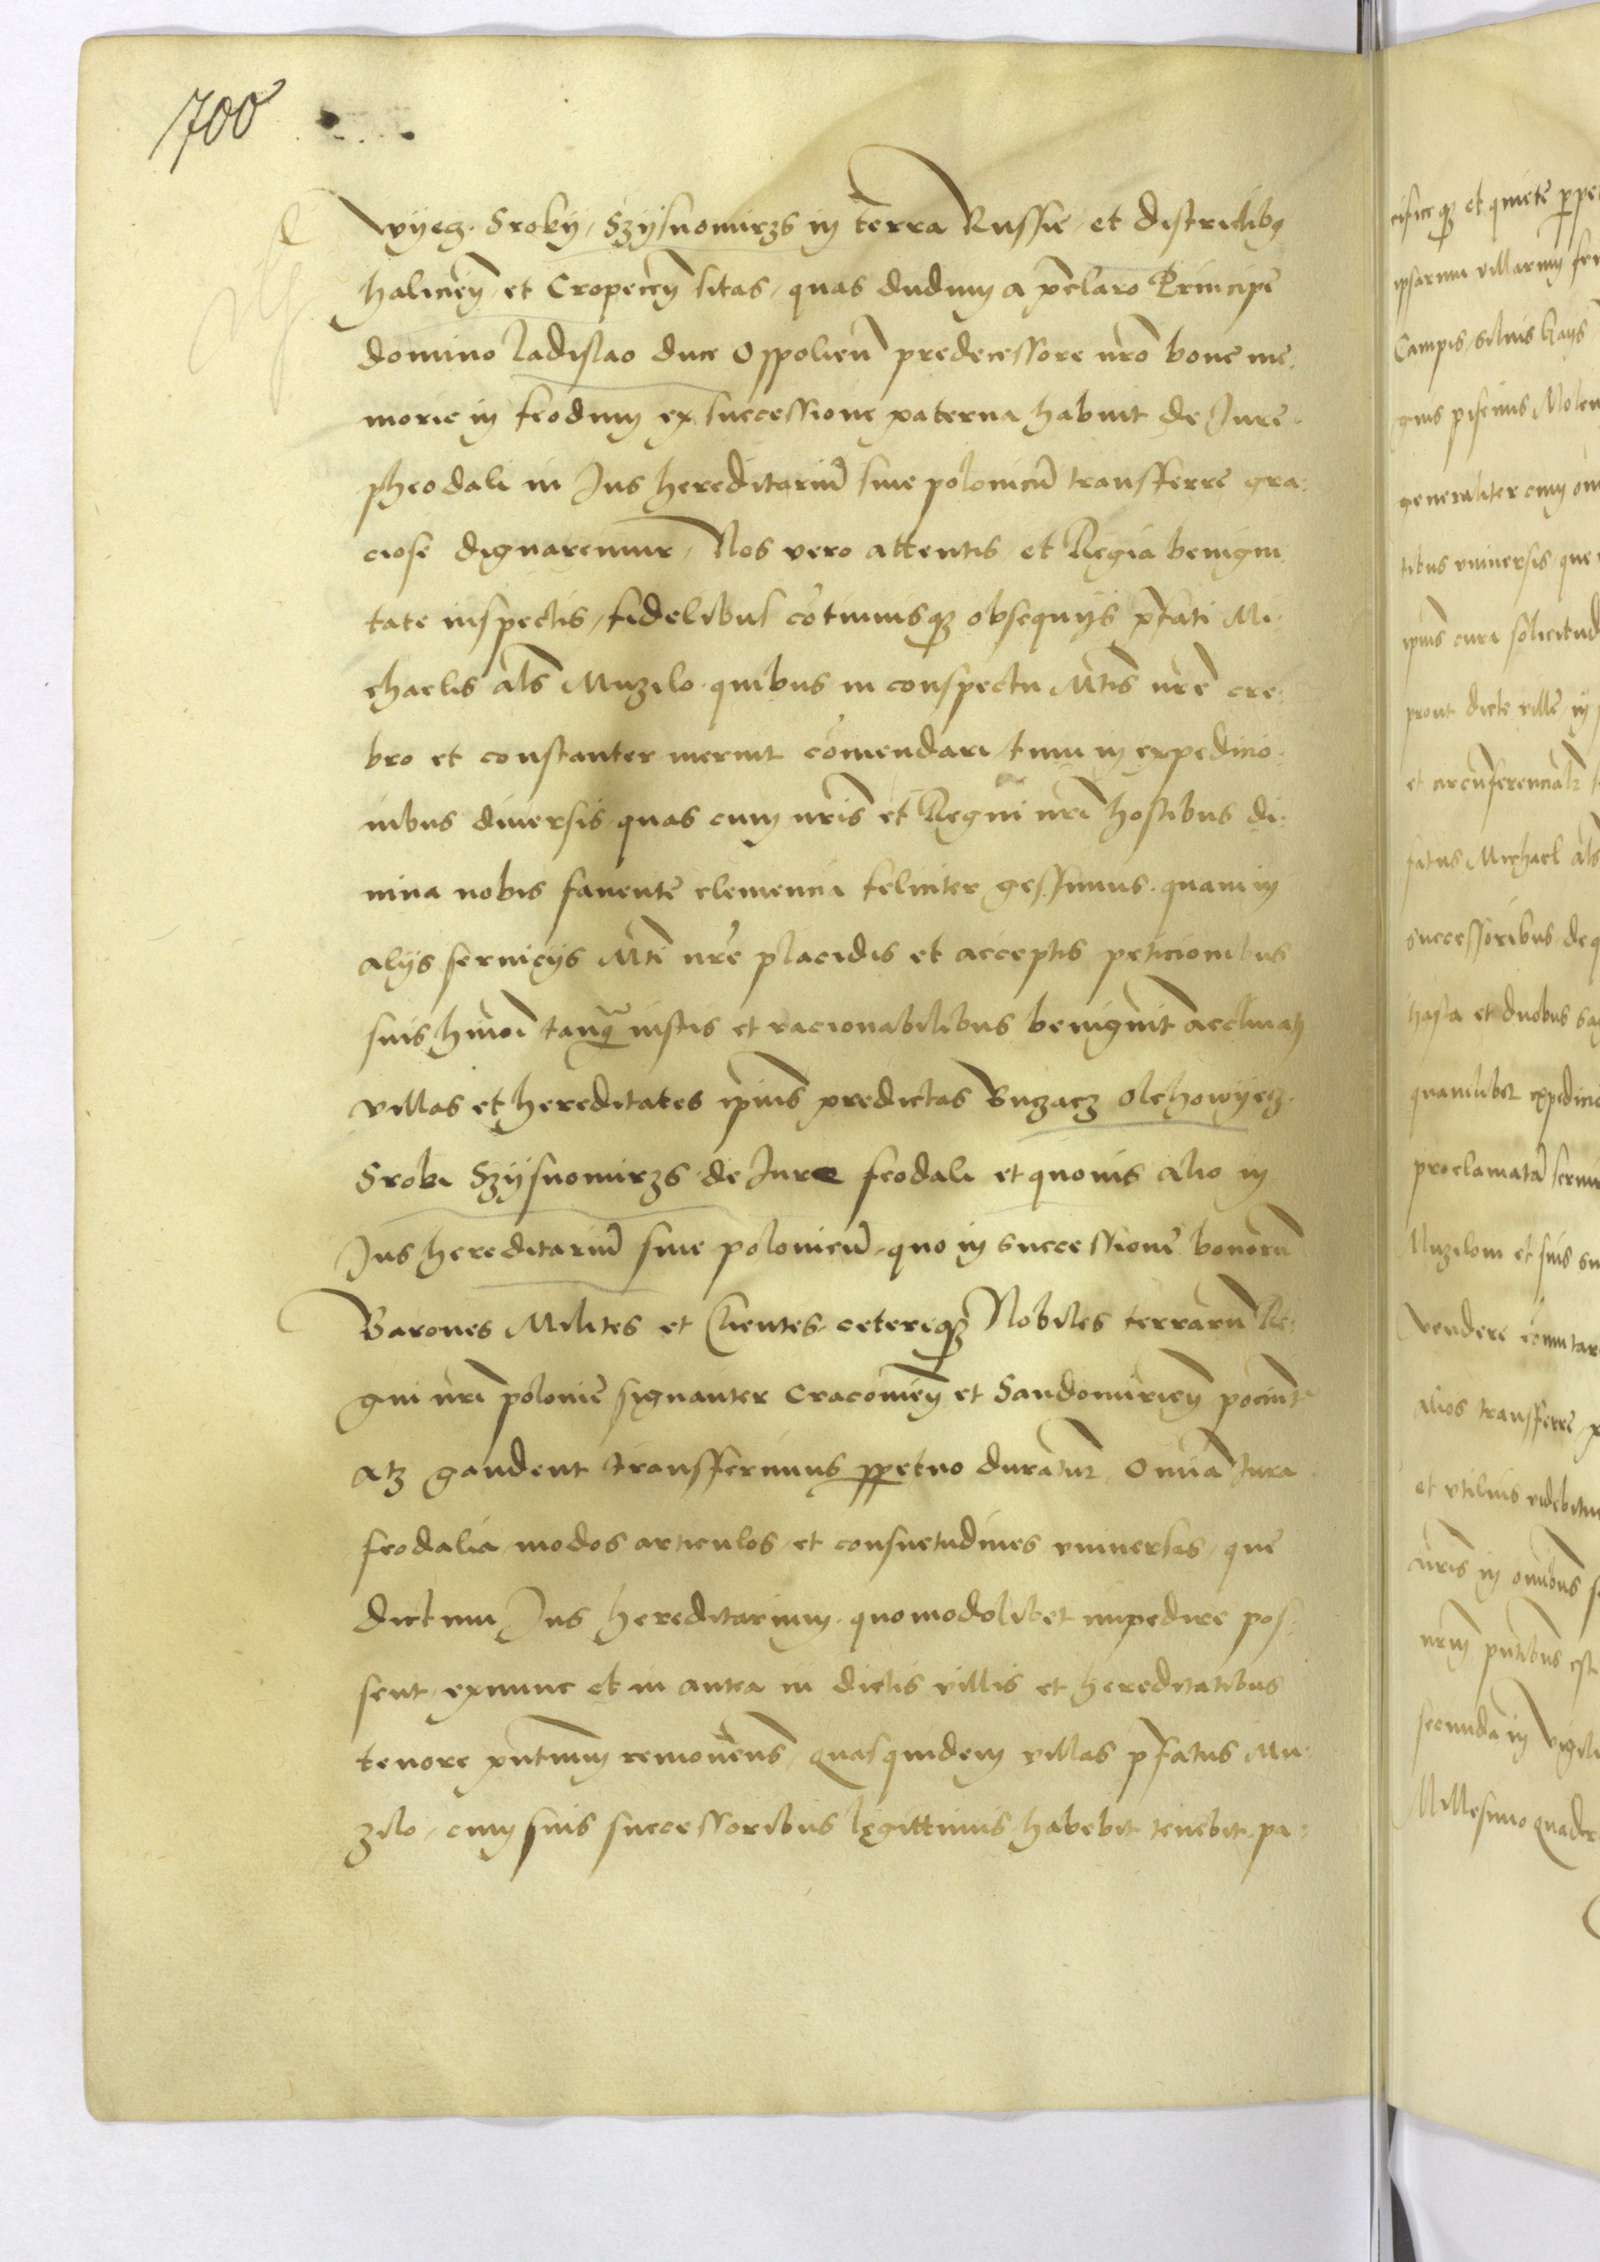 700
wyecz. Sroky, Szysnomirzs in terra Russie, et districtibq
halicień et Cropecień sitas, quas dudum a p̄claro Principe
domino ladislao duce Oppolień predecessore nr̄o bone me,
morie in feodum ex successione paterna habuit de Jure.
pheodali in Jus hereditariū siue polonicū transferre gra:
ciose dignaremur, Nos vero attentis et Regia benigni
tate inspectis, fidelibus cōtinuisq obsequijs p̄fati Mi:
chaelis als̄ Muzilo quibus in conspectu Mt̄is nr̄e cre:
bro et constanter meruit cōmendari, tum in expedicio:
nibus diuersis quas cum nr̄is et Regni nr̄i hostibus di:
uina nobis fauente clemencia feliciter gessimus. quam in
alijs seruicijs Mt̄i nr̄e placidis et acceptis peticionibus
suis hm̄oi tanq̄ iustis et racionabilibus benignit̄ acclinatj
villas et hereditates ip̄ius predictas Buczacz Olchowyecz.
Sroki Szysnomirzs de Jure feodali et quouis alio in
Jus hereditariū siue polonicū, quo in successione bonorū
Barones Milites et Clientes, ceteriq Nobiles terrarū Re:
gni nr̄i polonie signanter Cracouień et Sandomirień pociunt̄
atz gaudent transferimus ppetuo duratur̄, Omīa Jura
feodalia modos articulos et consuetudines vniuersas, que
dictum Jus hereditarium. quomodolibet impedire pos:
sent, exnunc et in antea in dictis villis et hereditatibus
tenore pn̄tium remouen̄s, quasquidem villas p̄fatus Mu:
zilo, cum suis successoribus legittimis habebit tenebit, pa:
cificeq et quiete perpe
ipsarum villarum
Campis, siluis
generaliter cum om
tibus vniuersis, que
prout dicte ville in
et circūferencialr
fatus Michael als̄
successoribus de q
hasta et duobus sa
quamlibet expedicio
proclamatā
Muzilom et suis su
vendere cōmutar
alios transferre
et vtilius videbitur
nr̄is in omībus
secunda in vigili
Millesimo quadr